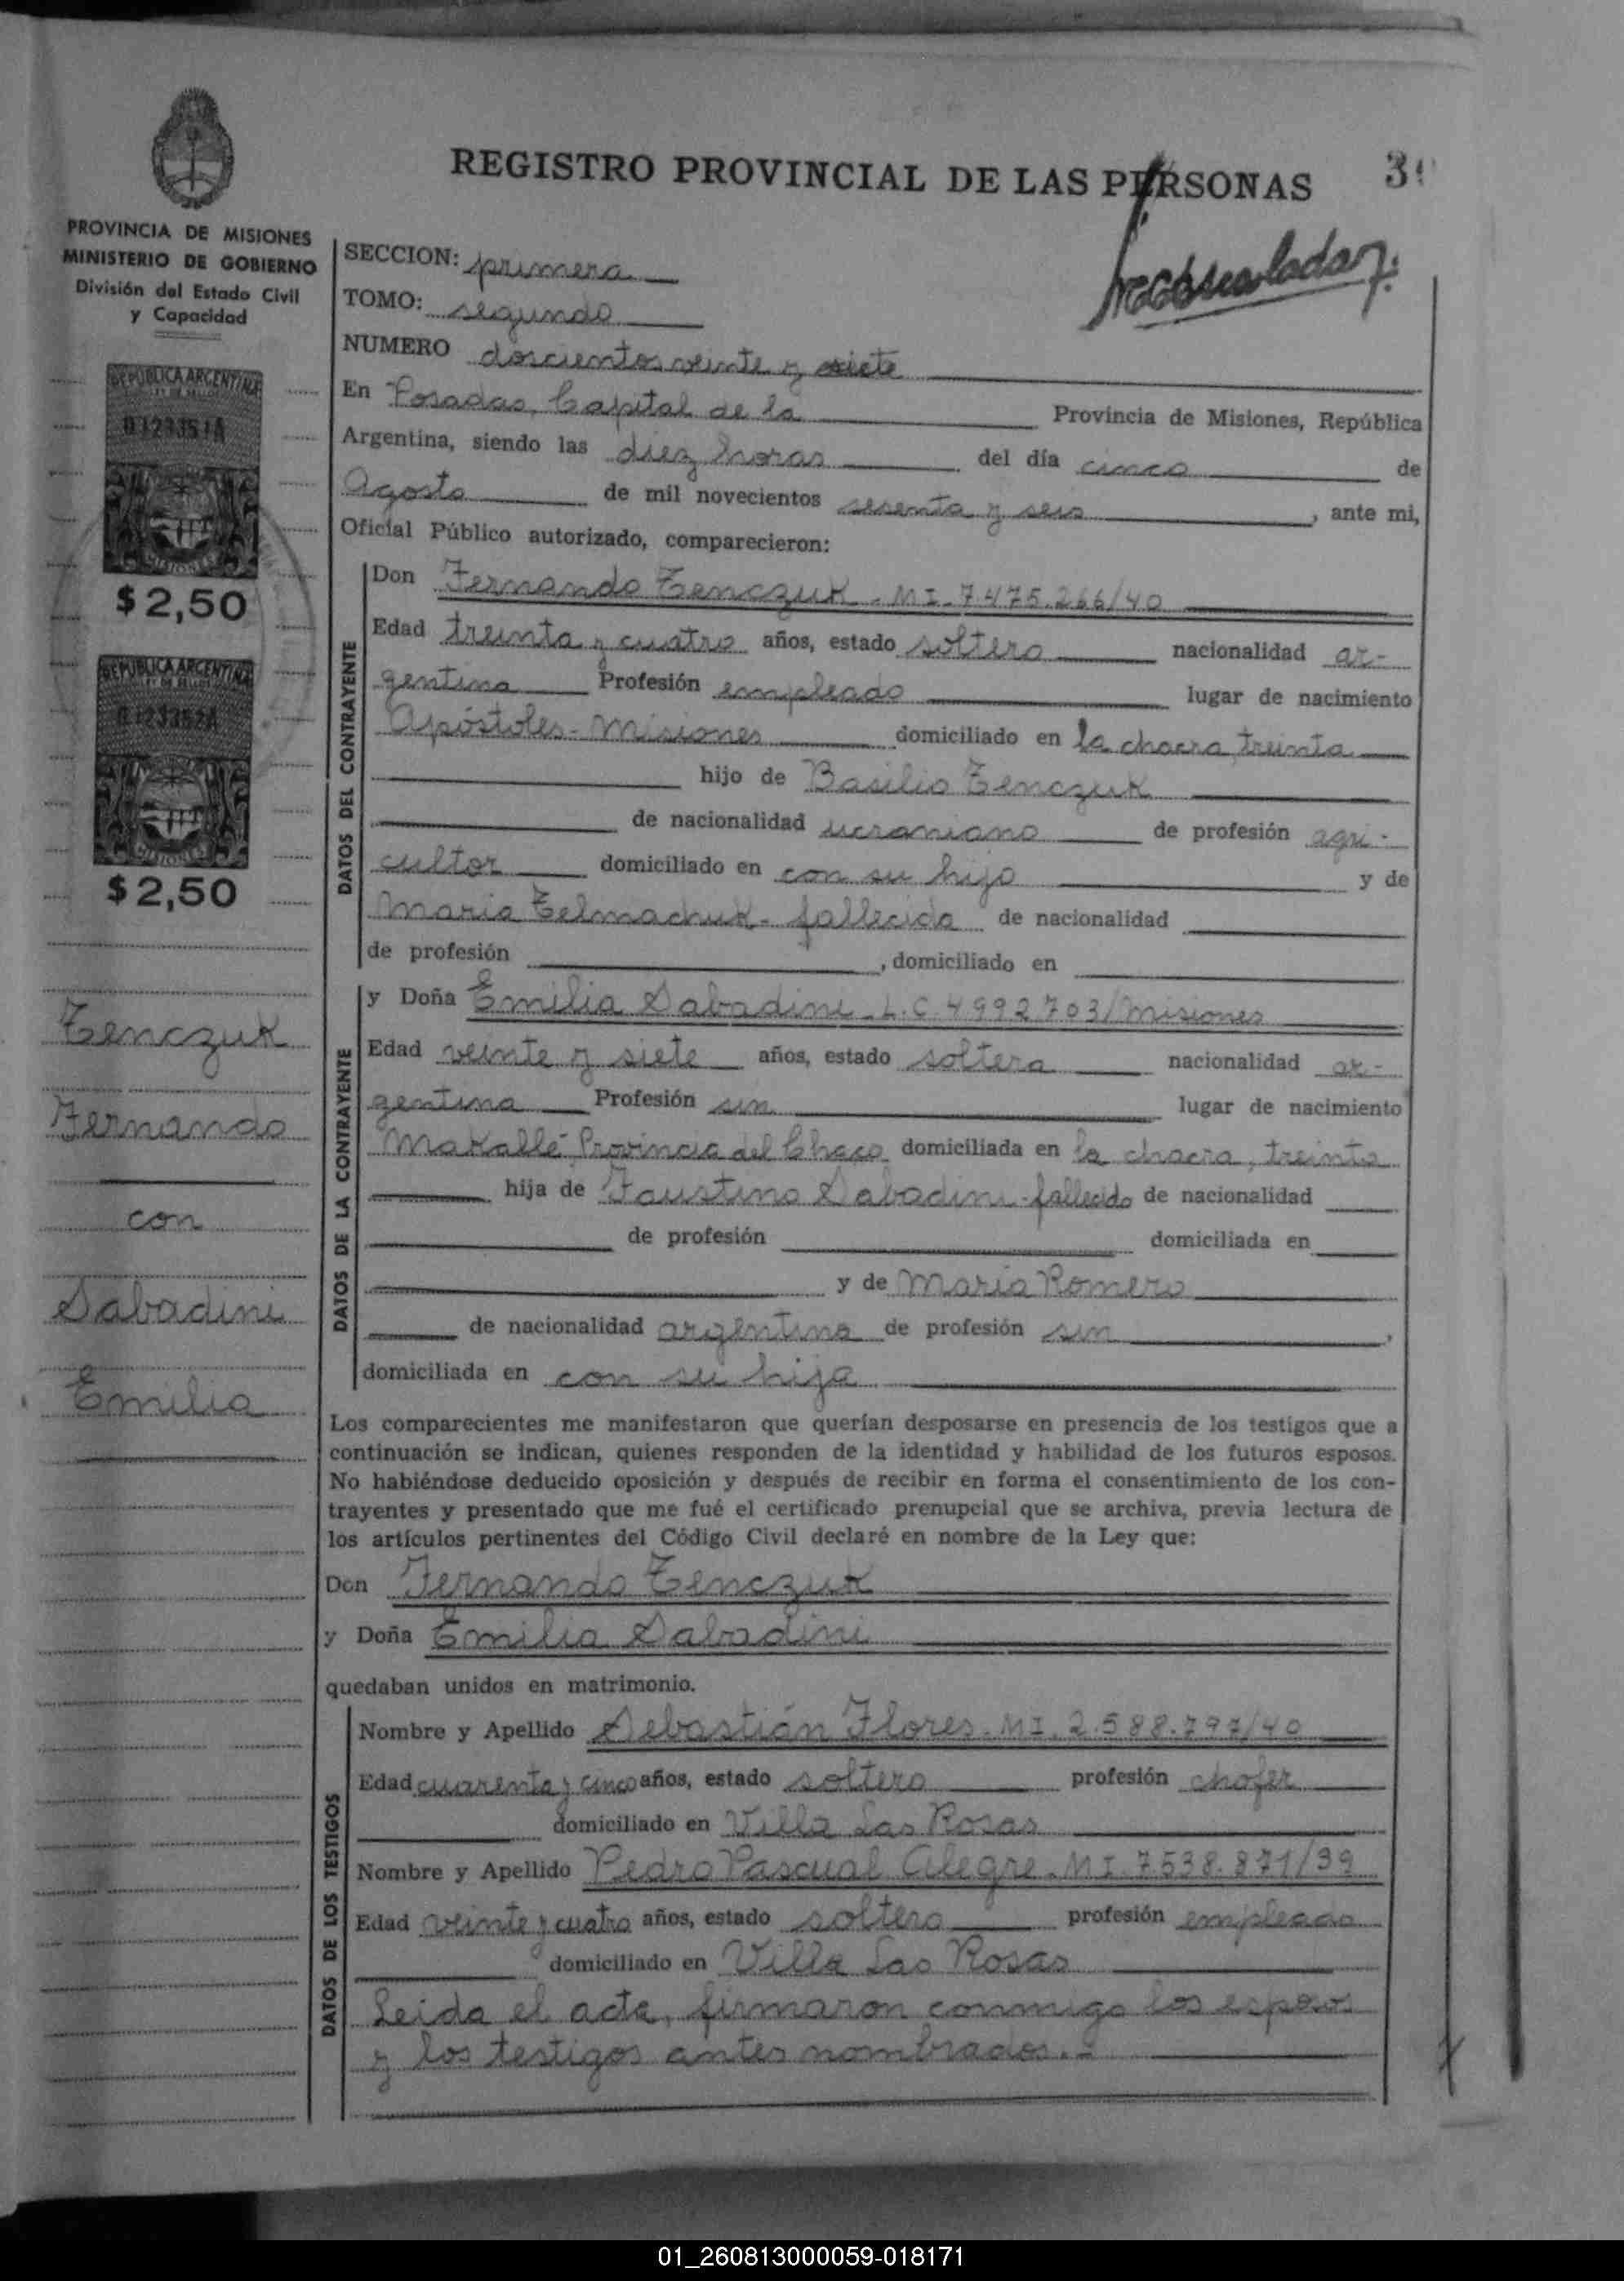 REGISTRO PROVINCIAL DE LAS PERSONAS
PROVINCIA DE MISIONES
MINISTERIO DE GOBIERNO
División del Estado Civil
y Capacidad
REPUBLICA ARGENTINA
LEY DE SELLOS
MISIONES
$2,50
REPUBLICA ARGENTINA
LEY DE SELLOS
MISIONES
$2,50
Tenczuk
Fernando
con
Sabadini
Emilia
SECCION: primera
TOMO: segundo
NUMERO doscientos veinte y siete
En Posadas, Capital de la Provincia de Misiones, República
Argentina, siendo las diez horas del día cinco de
Agosto de mil novecientos sesenta y seis, ante mi,
Oficial Público autorizado, comparecieron:
DATOS DEL CONTRAYENTE
Don Fernando Tenczuk - MI. 7.475.266/40
Edad treinta y cuatro años, estado soltero nacionalidad ar-
gentina Profesión empleado lugar de nacimiento
Apóstoles - Misiones domiciliado en la chacra treinta
hijo de Basilio Tenczuk
de nacionalidad ucraniano de profesión agri-
cultor domiciliado en con su hijo y de
Maria Telmachuk - fallecida de nacionalidad
de profesión , domiciliado en
DATOS DE LA CONTRAYENTE
y Doña Emilia Sabadini - L.C. 4992703/Misiones
Edad veinte y siete años, estado soltera nacionalidad ar-
gentina Profesión sin lugar de nacimiento
Makallé Provincia del Chaco domiciliada en la chacra, treinta
hija de Faustino Sabadini - fallecido de nacionalidad
de profesión domiciliada en
y de María Romero
de nacionalidad argentina de profesión sin ,
domiciliada en con su hija
Los comparecientes me manifestaron que querían desposarse en presencia de los testigos que a
continuación se indican, quienes responden de la identidad y habilidad de los futuros esposos.
No habiéndose deducido oposición y después de recibir en forma el consentimiento de los con-
trayentes y presentado que me fué el certificado prenupcial que se archiva, previa lectura de
los artículos pertinentes del Código Civil declaré en nombre de la Ley que:
Don Fernando Tenczuk
y Doña Emilia Sabadini
quedaban unidos en matrimonio.
DATOS DE LOS TESTIGOS
Nombre y Apellido Sebastián Flores - MI. 2.588.797/40
Edad cuarenta y cinco años, estado soltero profesión chofer
domiciliado en Villa Las Rosas
Nombre y Apellido Pedro Pascual Alegre - MI. 7.538.871/39
Edad veinte y cuatro años, estado soltero profesión empleado
domiciliado en Villa Las Rosas
Leida el acta, firmaron conmigo los esposos
y los testigos antes nombrados.-
01_260813000059-018171